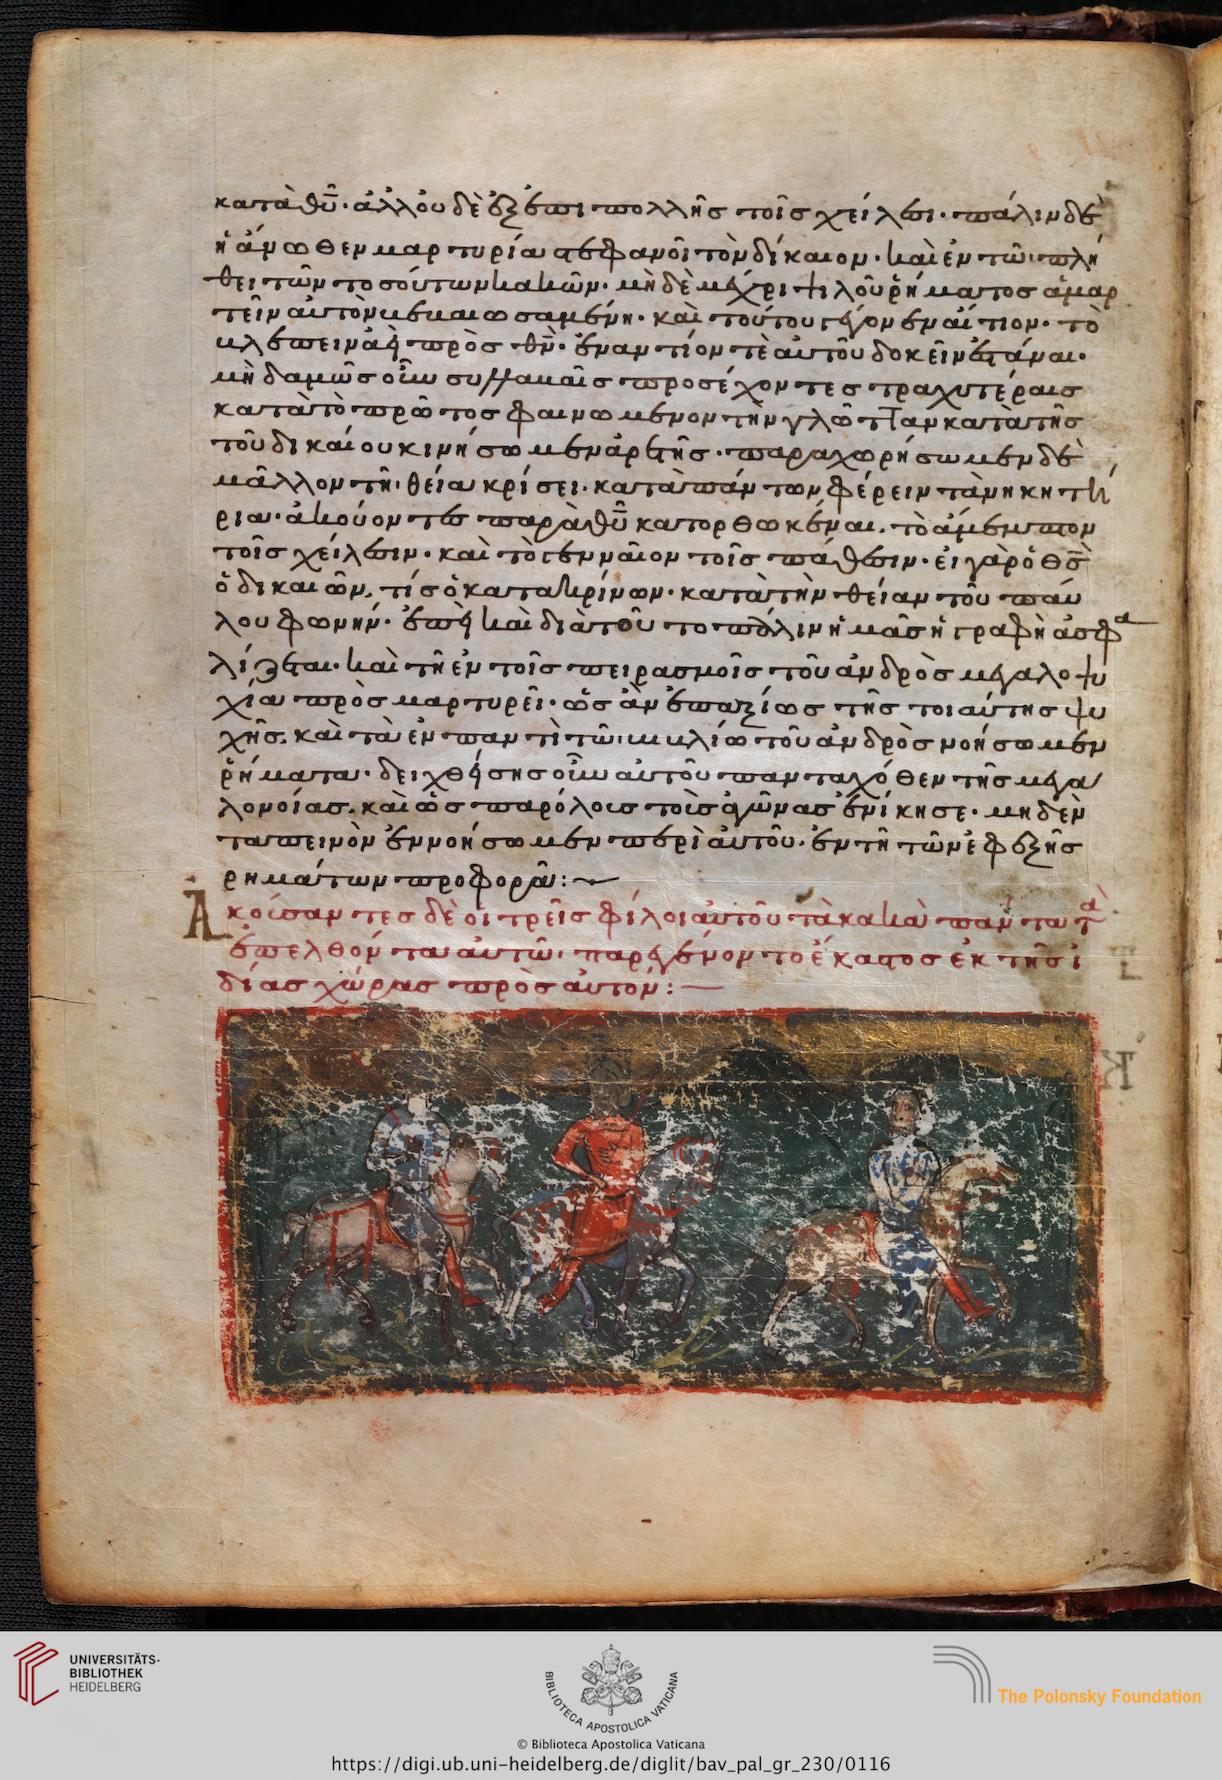 κατὰ θῦ· ἀλλ' οὐδὲ ἐξέωσι πολλῆς τοῖς χείλεσι· πάλιν δὲ
ἡ ἄνωθεν μαρτυρία στεφανοῖ τὸν δίκαιον· καὶ ἐν τῶ πλή
θει τῶν τοσούτων κακῶν· μὴ δὲ μέχρι ψιλοῦ ῥήματος ἁμαρ
τεῖν αὐτὸν· καὶ τούτου γέγονεν αἴτιον· τὸ
πρὸς θν· ἐναντίον τε αὐτοῦ δοκεῖν ἱστάναι·
μηδαμῶς οὖν συλλαβαῖς προσέχοντες τραχυτέραις
κατὰ τὸ πρώτως φαινώμενον τὴν γλῶτταν κατὰ τῆς
τοῦ δικαίου κινήσωμεν ἀρετῆς· παραχωρήσωμεν δὲ
μᾶλλον τῆ θεία κρίσει· κατὰ πάντων φέρειν τὰ νηκητή
ρια· ἀκούοντες παρὰ θῦ κατορθωκέναι· τὸ ἄμεμπτον
τοῖς χείλεσιν· καὶ τὸ γενναῖον τοῖς πάθεσιν· εἰ γὰρ ὁ θς
ὁ δικαιῶν, τίς ὁ κατακρίνων· κατὰ τὴν θείαν τοῦ παύ
λου φωνήν· ἐπεὶ καὶ διὰ τοῦτο πάλιν ἡμᾶς ἡ γραφὴ ἀσφα
λίζεται· καὶ τῆ ἐν τοῖς πειρασμοῖς τοῦ ἀνδρὸς μεγαλοψυ
χία προσμαρτυρεῖ· ὡς ἂν ἐπαξίως τῆς τοιαύτης ψυ
χῆς· καὶ τὰ ἐν παντὶ τῶ τοῦ ἀνδρὸς νοήσωμεν
ῥήματα· δειχθείσης οὖν αὐτοῦ πανταχόθεν τῆς μεγα
λονοίας· καὶ ὡς παρ' ὅλους τοὺς ἀγῶνας ἐνίκησε· μηδὲν
ταπεινὸν ἐννοήσωμεν περὶ αὐτοῦ· ἐν τῆ τῶν ἐφεξῆς
ρημάτων προφορᾶ:~
Ἀκούσαντες δὲ οἱ τρεῖς φίλοι αὐτοῦ τὰ κακὰ πάντα τὰ
ἐπελθόντα αὐτῶ· παρεγένοντο ἕκαστος ἐκ τῆς ἰ
δίας χώρας πρὸς αὐτόν:—
UNIVERSITÄTS-
BIBLIOTHEK
HEIDELBERG
BIBLIOTECA APOSTOLICA VATICANA
The Polonsky Foundation
© Biblioteca Apostolica Vaticana
https://digi.ub.uni-heidelberg.de/diglit/bav_pal_gr_230/0116